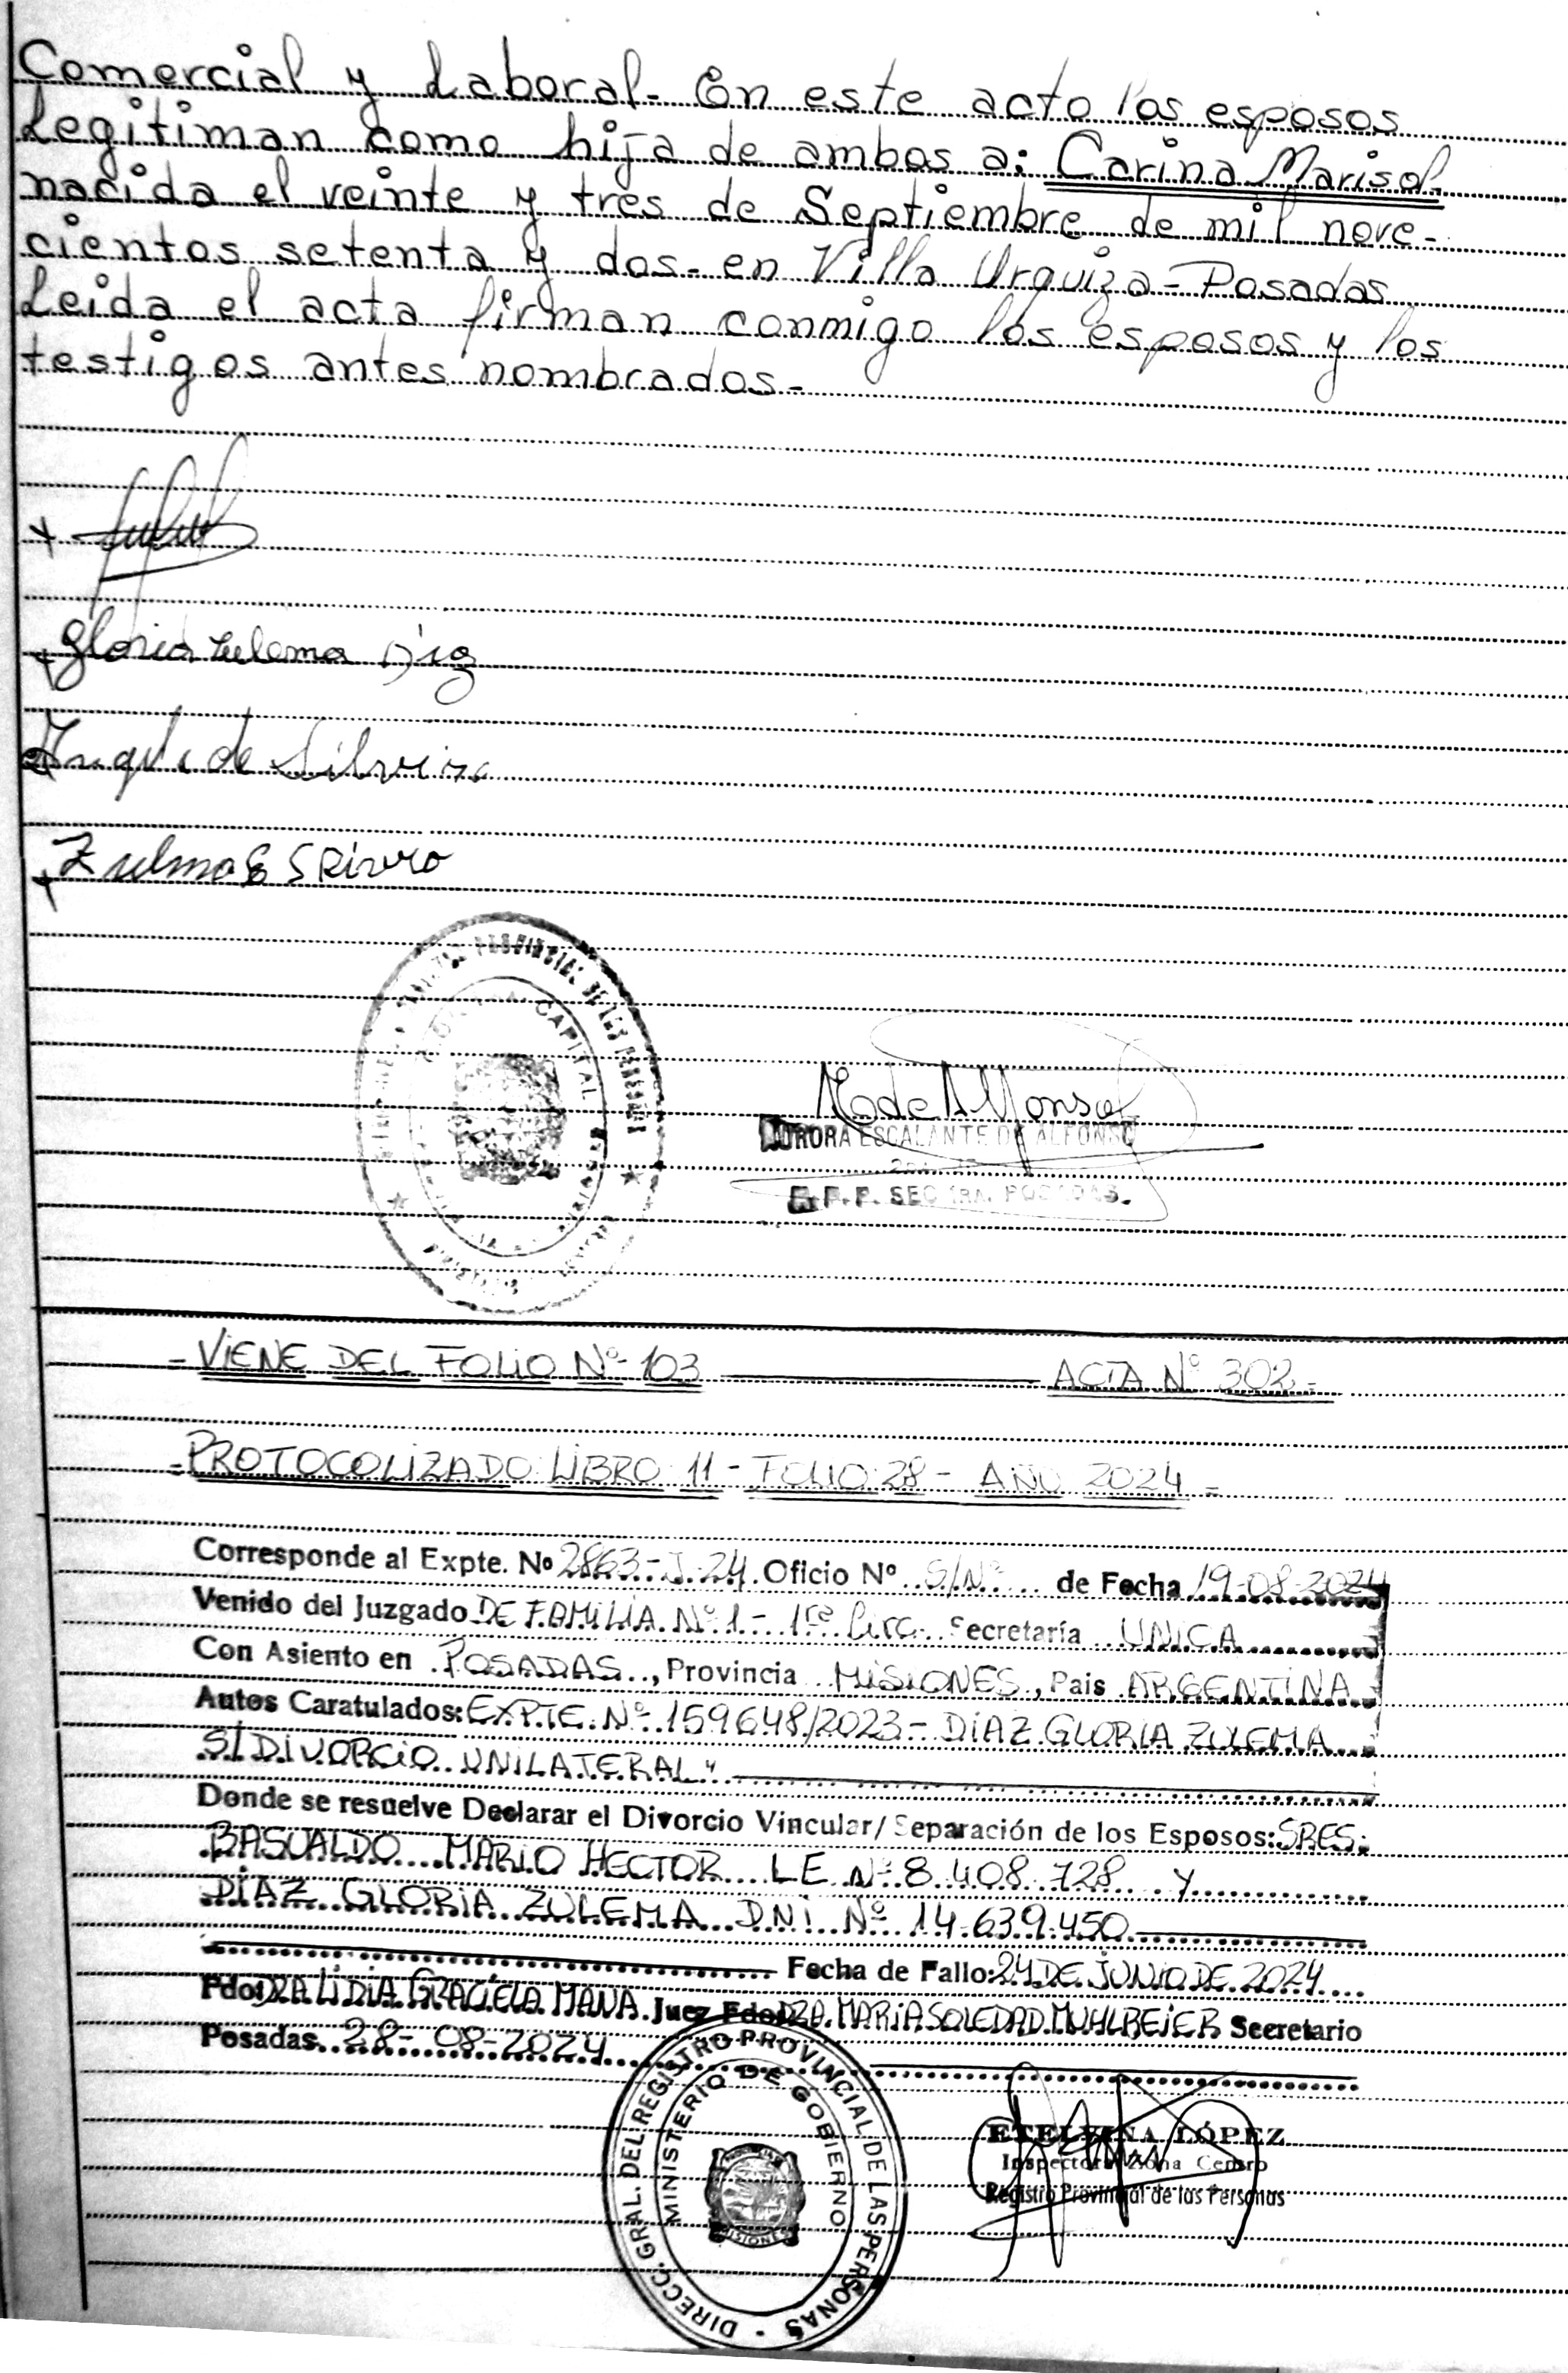 Comercial y Laboral- En este acto los esposos
Legitiman como hija de ambos a: Carina Marisol-
nacida el veinte y tres de Septiembre de mil nove-
cientos setenta y dos- en Villa Urquiza-Posadas
Leida el acta firman conmigo los esposos y los
testigos antes nombrados-
Gloria Zulema Diaz
de Silveira
Zulma E
PROVINCIAL DE LAS PERSONAS
CAPITAL
AURORA ESCALANTE DE ALFONSO
R.P.P. SEC 1RA. POSADAS.
- VIENE DEL FOLIO Nº 103 ACTA Nº 302-
-PROTOCOLIZADO: LIBRO: 11 - FOLIO: 28 - AÑO 2024 -
Corresponde al Expte. Nº 2863-J-24. Oficio Nº S/Nº de Fecha 19-08-2024
Venido del Juzgado DE FAMILIA Nº 1 - 1ra Circ. Secretaría UNICA
Con Asiento en POSADAS, Provincia MISIONES, Pais ARGENTINA
Autos Caratulados: EXPTE. Nº 159648/2023 - DIAZ GLORIA ZULEMA
S/DIVORCIO UNILATERAL"
Donde se resuelve Declarar el Divorcio Vincular/ Separación de los Esposos: SRES.
BASUALDO MARIO HECTOR LE Nº 8.408.728 Y
DIAZ GLORIA ZULEMA D.N.I. Nº 14.639.450
Fecha de Fallo: 24 DE JUNIO DE 2024
Fdo: DRA LIDIA GRACIELA MANA Juez Fdo: DRA. MARIA SOLEDAD MUHLBEIER Secretario
Posadas 28-08-2024
DIRECC. GRAL. DEL REGISTRO PROVINCIAL DE LAS PERSONAS
MINISTERIO DE GOBIERNO
MISIONES
ETELVINA LÓPEZ
Inspectora Zona Centro
Registro Provincial de las Personas